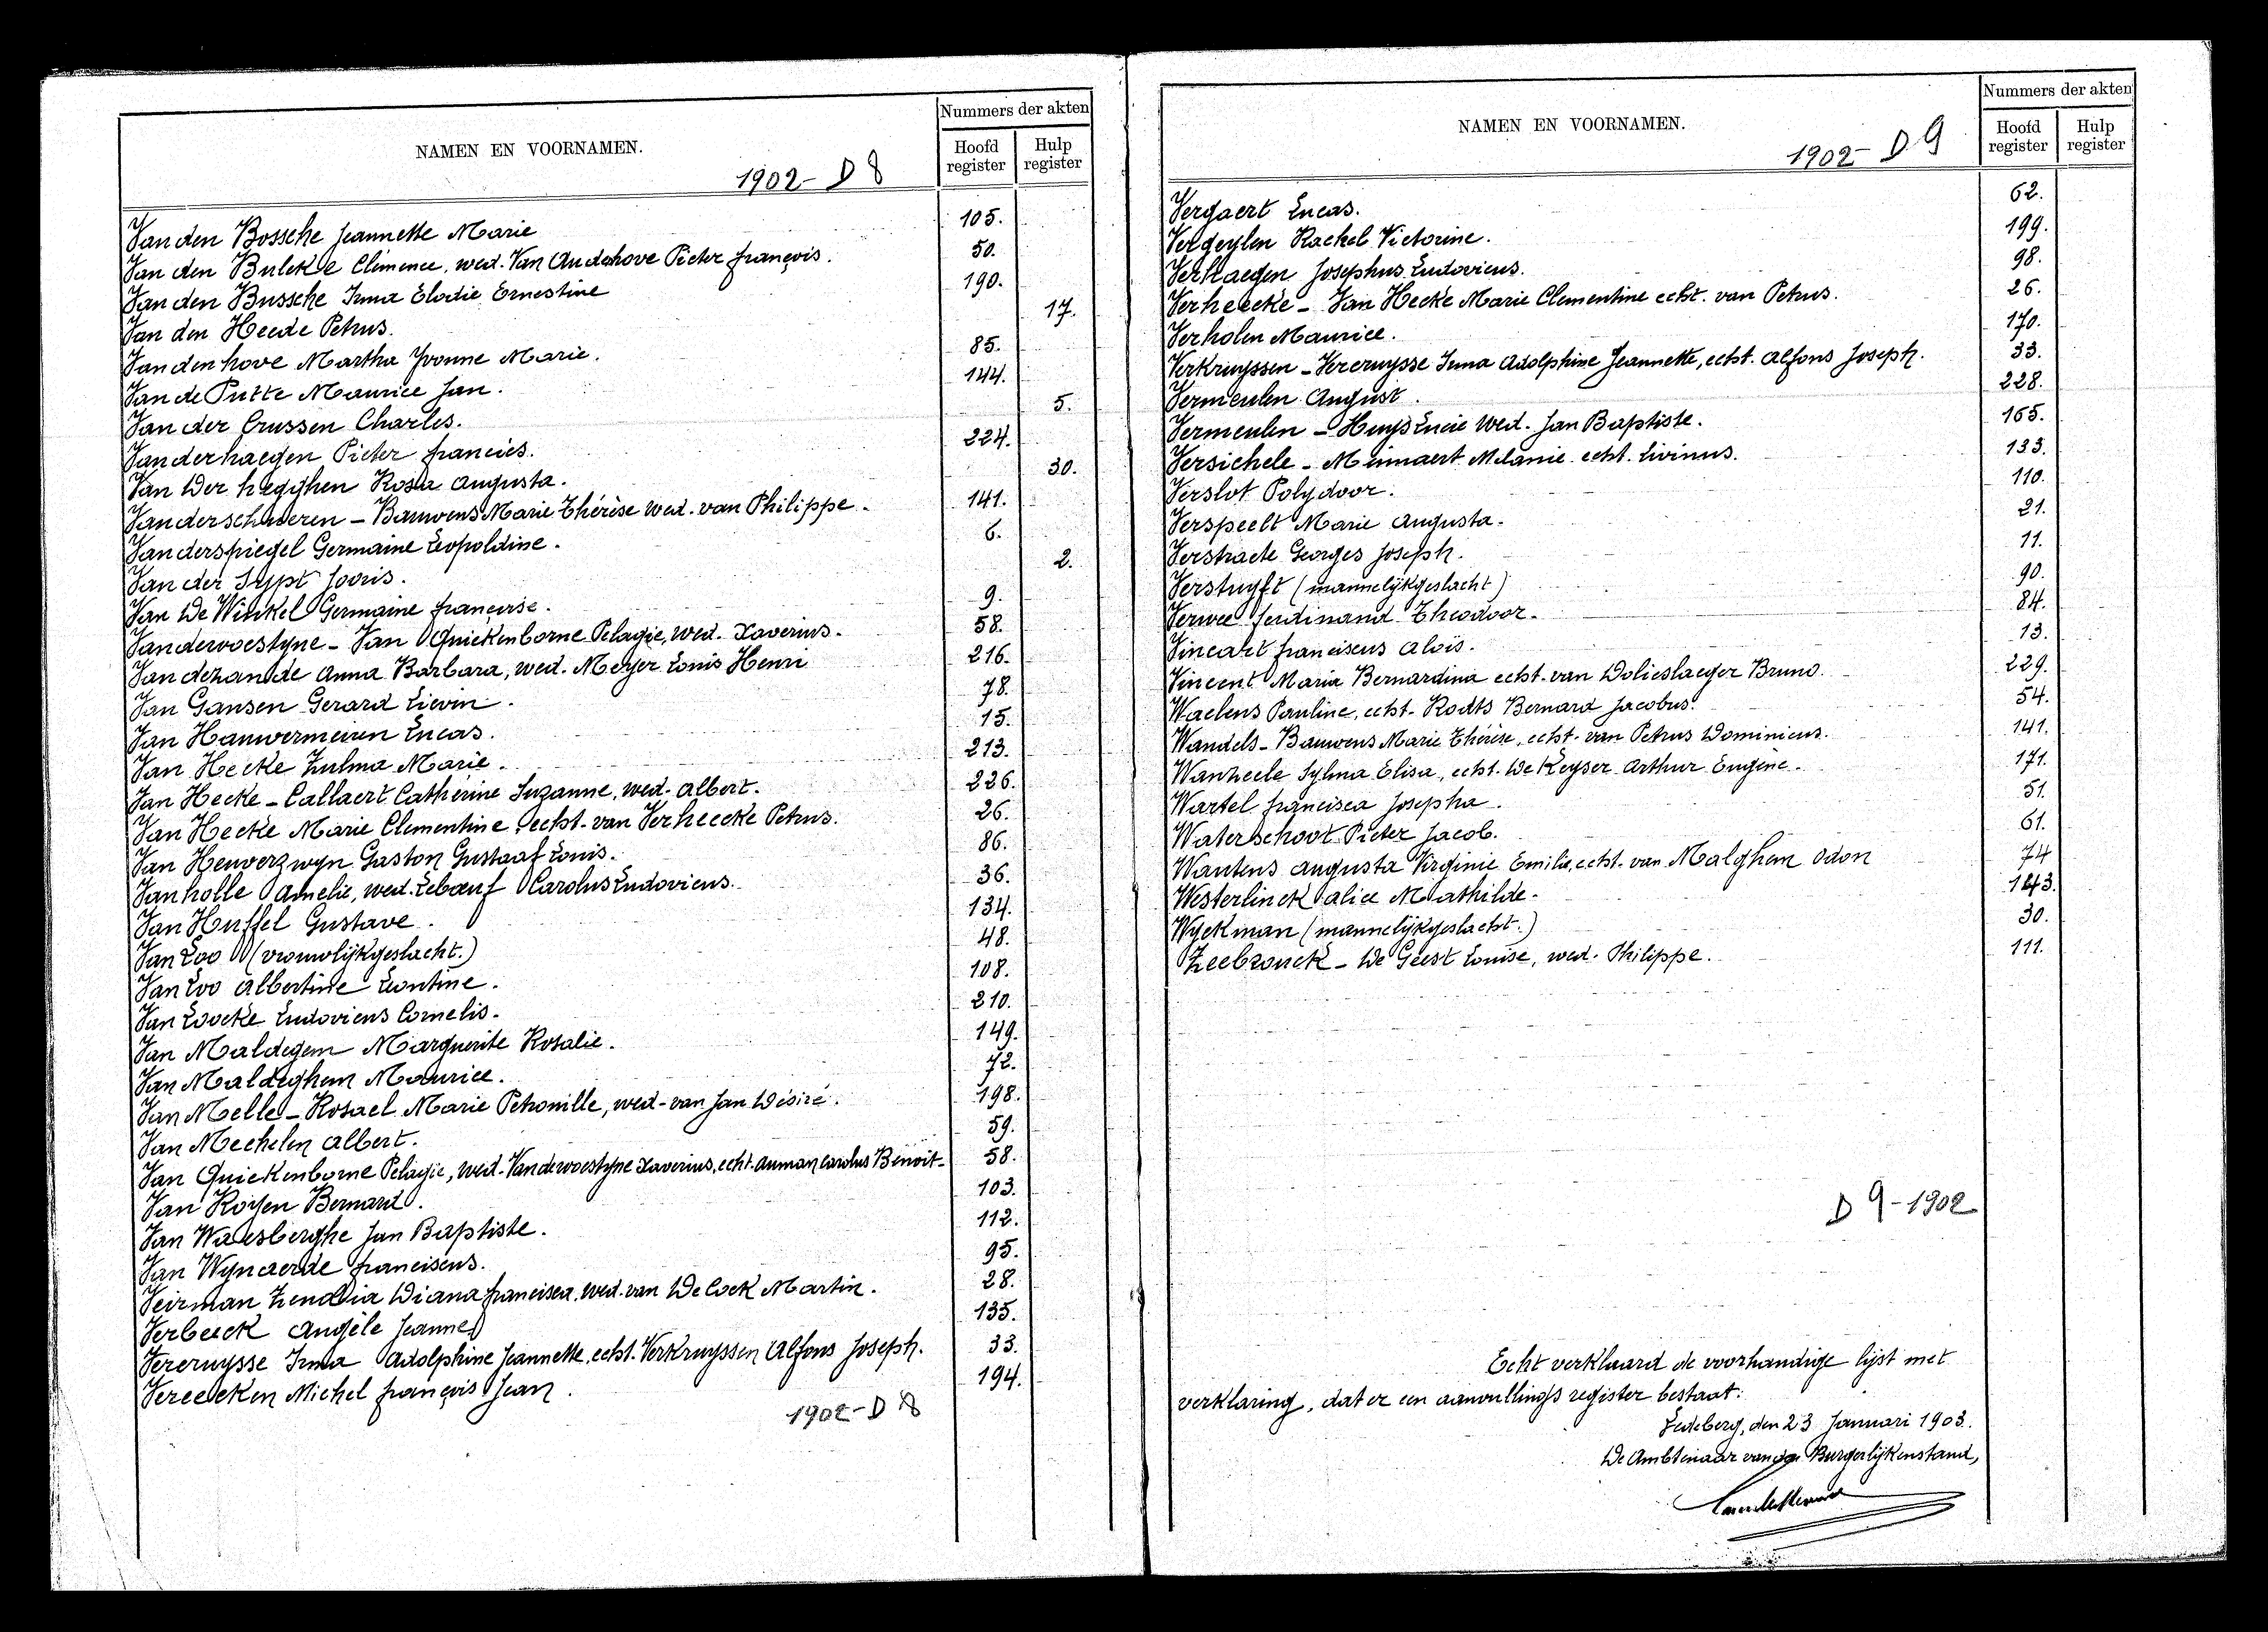 NAMEN EN VOORNAMEN.
Nummers der akten
Hoofd register
Hulp register
1902 - D 8
Van den Bossche Jeannette Marie 105.
Van den Bulcke Clémence, wed. Van Audehove Pieter françois. 50.
Van den Bussche Irma Elodie Ernestine 190.
Van den Heede Petrus. 17.
Vandenhove Martha Yvonne Marie. 85.
Van de Putte Maurice Jan. 144.
Van der Crussen Charles. 5.
Vanderhaegen Pieter francies. 224.
Van der heyghen Rosa Augusta. 30.
Vanderschueren - Bauwens Marie Thérèse wed. van Philippe. 141.
Vanderspiegel Germaine Leopoldine. 6.
Van der Sypt Joris. 2.
Van De Winkel Germaine françoise. 9.
Vanderwoestyne - Van Quickenborne Pelagie, wed. Xaverius. 58.
Vandezande Anna Barbara, wed. Meyer Louis Henri 216.
Van Gansen Gerard Lievin. 78.
Van Hauwermeiren Lucas. 15.
Van Hecke Zulma Marie. 213.
Van Hecke - Callaert Catherine Suzanne, wed. Albert. 226.
Van Hecke Marie Clementine, echt. van Verheecke Petrus. 26.
Van Heuverzwyn Gaston Gustaaf Louis. 86.
Vanholle Amelie, wed. Lebœuf Carolus Ludovicus. 36.
Van Huffel Gustave. 134.
Van Loo (vrouwlijkgeslacht.) 48.
Van Loo Albertine Leontine. 108.
Van Loocke Ludovicus Cornelis. 210.
Van Maldegem Marguerite Rosalie. 149.
Van Maldeghem Maurice. 72.
Van Melle - Rosael Marie Petronille, wed. van Jan Désiré. 198.
Van Mechelen Albert. 59.
Van Quickenborne Pelagie, wed. Vanderwoestyne Xaverius, echt. Auman Carolus Benoit. 58.
Van Royen Bernard. 103.
Van Waesberghe Jan Baptiste. 112.
Van Wynaerde franciscus. 95.
Veirman Zenobia Diana francisca, wed. van De Cock Martin. 28.
Verbeeck Angèle Jeanne 135.
Vercruysse Irma Adolphine Jeannette, echt. Verkruyssen Alfons Joseph. 33.
Vereecken Michel françois Jean. 194.
1902 - D 8
NAMEN EN VOORNAMEN.
Nummers der akten
Hoofd register
Hulp register
1902 - D 9
Vergaert Lucas. 62.
Vergeylen Rachel Victorine. 199.
Verhaegen Josephus Ludovicus. 98.
Verheecke - Van Hecke Marie Clementine echt. van Petrus. 26.
Verholen Maurice. 170.
Verkruyssen - Vercruysse Irma Adolphine Jeannette, echt. Alfons Joseph. 33.
Vermeulen August. 228.
Vermeulen - Huys Lucie wed. Jan Baptiste. 165.
Versichele - Minnaert Melanie echt. Livinus. 133.
Verslot Polydoor. 110.
Verspeelt Marie Augusta. 21.
Verstraete Georges Joseph. 11.
Verstuyft (mannelijkgeslacht) 90.
Verwee ferdinand Theodoor. 84.
Vincart franciscus Aloïs. 13.
Vincent Maria Bernardina echt. van Dolieslaeger Bruno. 229.
Waelens Pauline, echt. Rodts Bernard Jacobus. 54.
Wandels - Bauwens Marie Thérèse, echt. van Petrus Dominicus. 141.
Wanzeele Sylma Elisa, echt. De Keyser Arthur Eugène. 171.
Wartel francisca Josepha. 51.
Waterschoot Pieter Jacob. 61.
Wautens Augusta Virginie Emilie, echt. van Malghem Odon 74
Westerlinck Alice Mathilde. 143.
Wyckman (mannelijkgeslacht.) 30.
Zeebrouck - De Geest Louise, wed. Philippe. 111.
D 9 - 1902
Echt verklaard de voorhandige lijst met
verklaring, dat er een aanvullings register bestaat.
Ledeberg, den 23 Januari 1903.
De Ambtenaar van den Burgerlijkenstand,